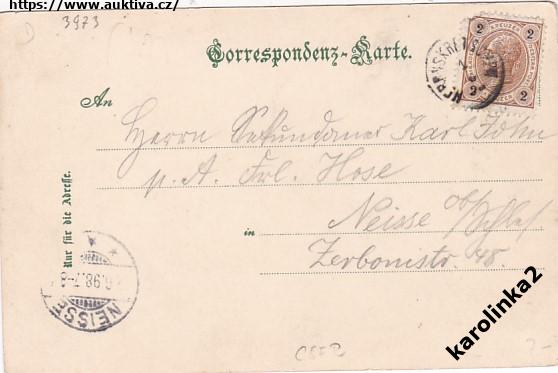 https://www.auktiva.cz/
3973
Correspondenz-Karte.
2 KREUZER 2
2 2
HERRNSKRETSCHEN
An
Herrn Sekundaner Karl John
p. A. Frl. Hose
Neisse ob/Schles
in
Zerbonistr. 48
Nur für die Adresse.
6.98.7-8
NEISSE
karolinka2